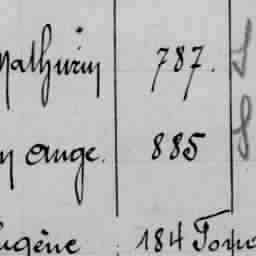 Mathurin 787.
n Ange. 885
ugène 184